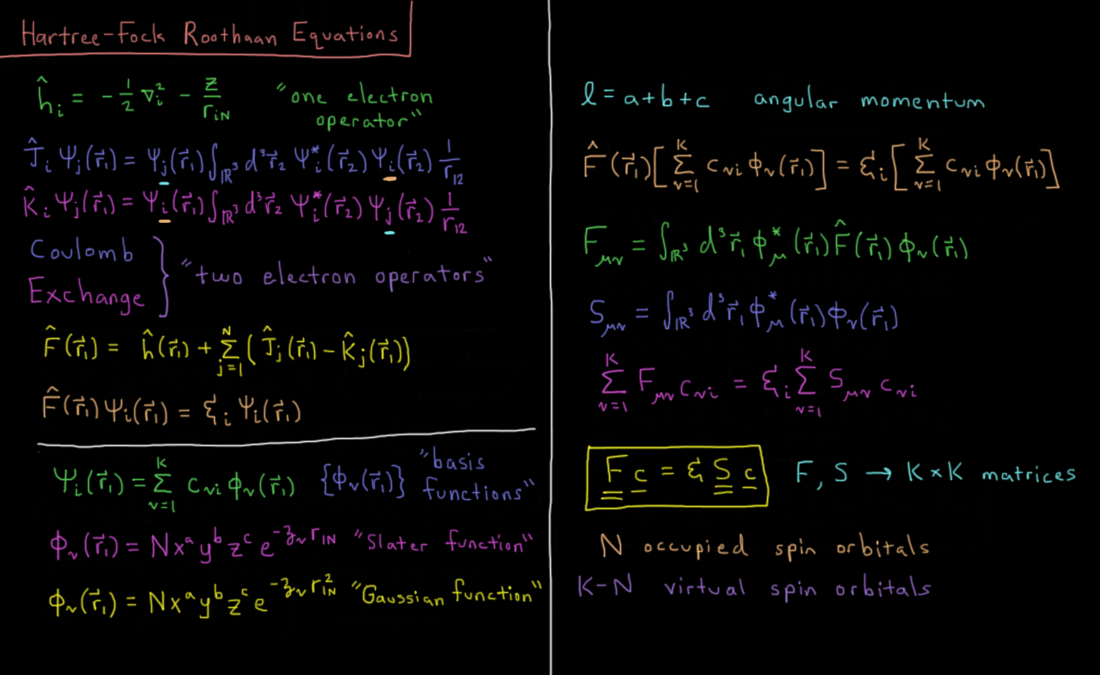 Hartree-Fock Roothaan Equations
ĥᵢ = -½ ∇ᵢ² - Z/r_iN "one electron
operator"
Ĵᵢ Ψⱼ(r⃗₁) = Ψⱼ(r⃗₁) ∫_ℝ³ d³r⃗₂ Ψᵢ*(r⃗₂) Ψᵢ(r⃗₂) 1/r₁₂
K̂ᵢ Ψⱼ(r⃗₁) = Ψᵢ(r⃗₁) ∫_ℝ³ d³r⃗₂ Ψᵢ*(r⃗₂) Ψⱼ(r⃗₂) 1/r₁₂
Coulomb
Exchange } "two electron operators"
F̂(r⃗₁) = ĥ(r⃗₁) + Σ_{j=1}^{N} (Ĵⱼ(r⃗₁) - K̂ⱼ(r⃗₁))
F̂(r⃗₁) Ψᵢ(r⃗₁) = ξᵢ Ψᵢ(r⃗₁)
Ψᵢ(r⃗₁) = Σ_{ν=1}^{K} c_νi ϕ_ν(r⃗₁) {ϕ_ν(r⃗₁)} "basis
functions"
ϕ_ν(r⃗₁) = N xᵃ yᵇ zᶜ e^{-ζ_ν r_1N} "Slater function"
ϕ_ν(r⃗₁) = N xᵃ yᵇ zᶜ e^{-ζ_ν r_1N²} "Gaussian function"
l = a+b+c angular momentum
F̂(r⃗₁)[Σ_{ν=1}^{K} c_νi ϕ_ν(r⃗₁)] = ξᵢ [Σ_{ν=1}^{K} c_νi ϕ_ν(r⃗₁)]
F_μν = ∫_ℝ³ d³r⃗₁ ϕ_μ*(r⃗₁) F̂(r⃗₁) ϕ_ν(r⃗₁)
S_μν = ∫_ℝ³ d³r⃗₁ ϕ_μ*(r⃗₁) ϕ_ν(r⃗₁)
Σ_{ν=1}^{K} F_μν c_νi = ξᵢ Σ_{ν=1}^{K} S_μν c_νi
F c = ξ S c F, S → K×K matrices
N occupied spin orbitals
K-N virtual spin orbitals